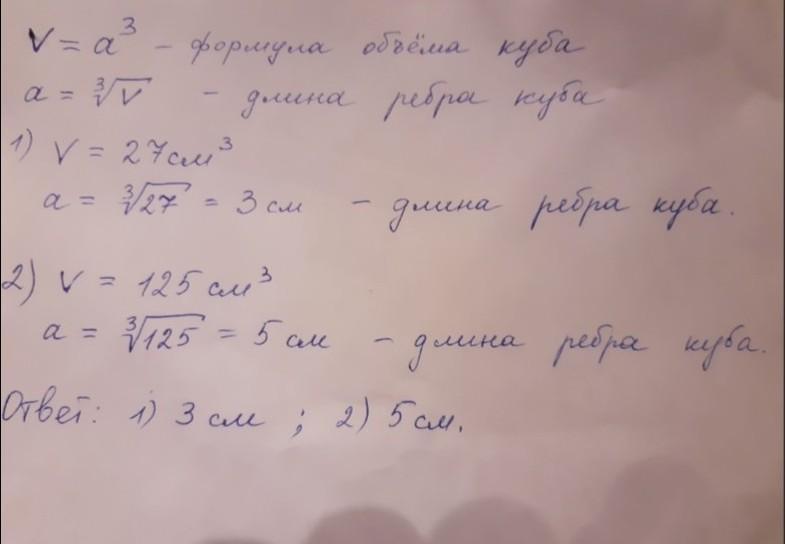 V = a³ – формула объёма куба
a = ∛V – длина ребра куба
1) V = 27 см³
a = ∛27 = 3 см – длина ребра куба.
2) V = 125 см³
a = ∛125 = 5 см – длина ребра куба.
Ответ: 1) 3 см ; 2) 5 см.